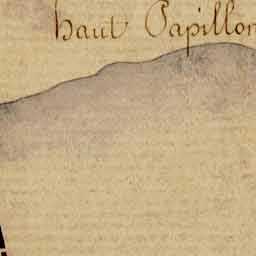 haut Papillon